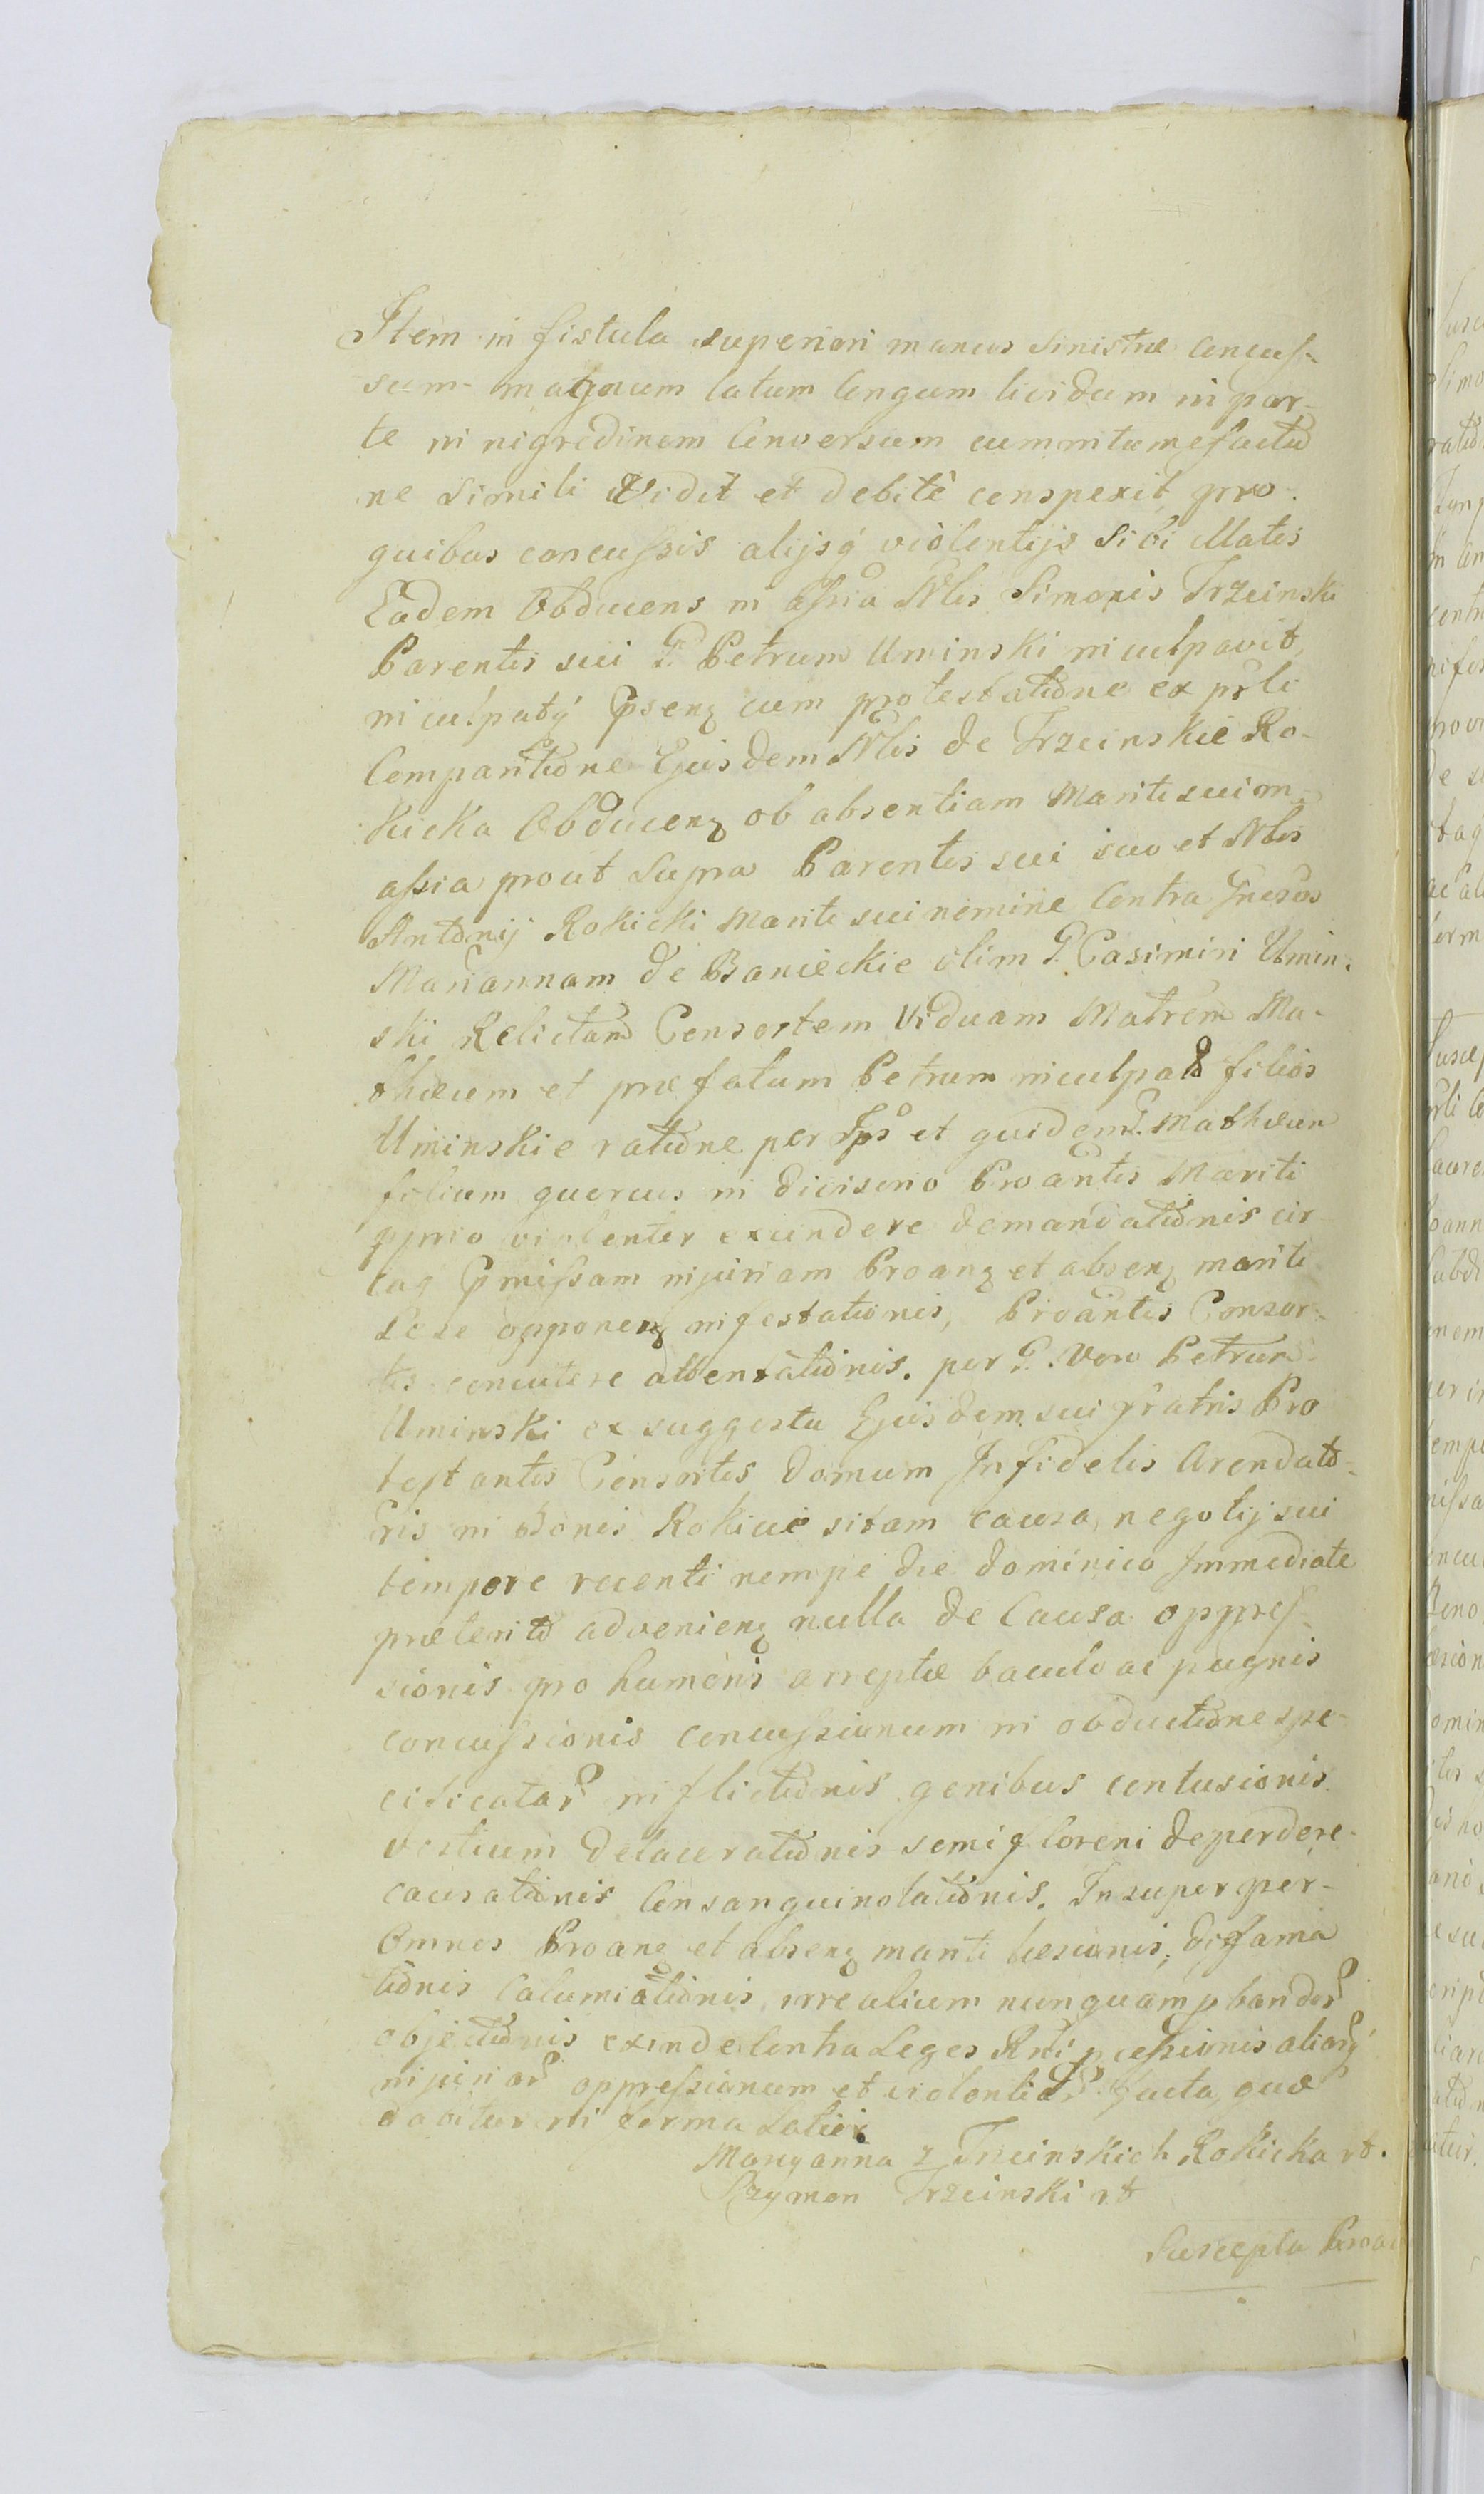 Item in fistula superiori manus sinistræ concus-
sum magnum latum longum lividum in par-
te in nigredinem conversum cum intumefactio
ne simili Vidit et debitè conspexit, pro
quibus concussis alijsq́ violentijs sibi illatis
Eadem Obducens in assia Nlis Simonis Trzcinski
Parentis sui G. Petrum Uminski inculpavit,
inculpatq́ Psenz cum protestatione ex prli
Comparitione Ejusdem Nlis de Trzcinskie Ro-
kicka Obducenz ob absentiam Mariti sui in
assia prout supra Parentis sui suo et Nlis
Antonij Rokicki Mariti sui nomine Contra Gnesos
Mariannam de Banieckie olim G. Casimiri Umin-
ski Relictam Consortem Viduam Matrem Ma-
thæum et præfatum Petrum inculpato filios
Uminskie ratione per Ipso et quidem G. Mathæum
filium quercus in diviserio Proantis Mariti
pprio violenter excindere demandationis cir
caq Pmissam injuriam Proanz et absenz mariti
sese opponenz infestationis, Proantis Consor-
tis concutere attentationis. per G. vero Petrum
Uminski ex suggestu Ejusdem sui fratris Pro
testantis Consortis domum Infidelis Arendato-
ris in Bonis Rokicie sitam causa negotij sui
tempore recenti nempe die dominico Immediate
præterito advenienz nulla de Causa oppres-
sionis pro humeris arreptæ baculo ac pugnis
concussionis concussionum in obductione spe-
cificatar inflictionis genibus contusionis
vestium delacerationis semifloreni deperdere
causationis Consanguinolationis. Insuper per
Omnes Proanz et absenz mariti læsionis, diffama
tionis Calumiationis irrealium nunquam pbandor
objectionis exinde Contra Leges Rni pcessionis aliarq́
injuriar oppressionum et violentiar facta, quæ
dabitur in forma Latiori
Maryanna z Trzcinskich Rokicka rt.
Szymon Trzcinski rt
Suscepta Proa